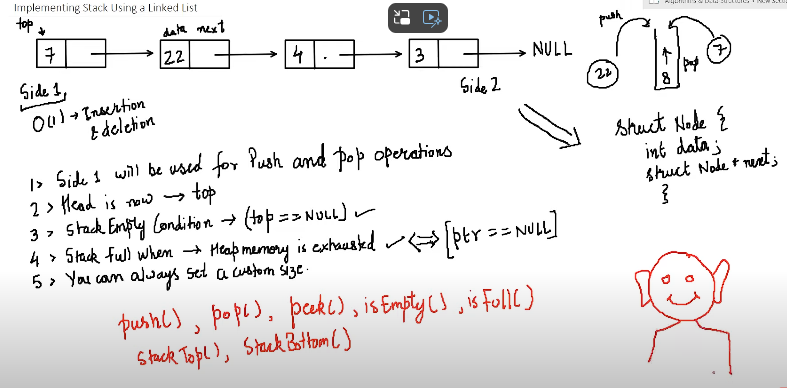 Implementing Stack Using a Linked List
Algorithms & Data Structures
top
data next
push
7
22
4 .
3
NULL
22
8
pop
7
Side 1
Side 2
O(1) → Insertion
& deletion
struct Node {
int data;
struct Node * next;
}
1> Side 1 will be used for Push and pop operations
2> Head is now → top
3> Stack Empty Condition → (top == NULL) ✓
4> Stack full when → Heap memory is exhausted ✓ ⇔ [ptr == NULL]
5> You can always set a custom size.
push(), pop(), peek(), isEmpty(), isFull()
StackTop(), StackBottom()